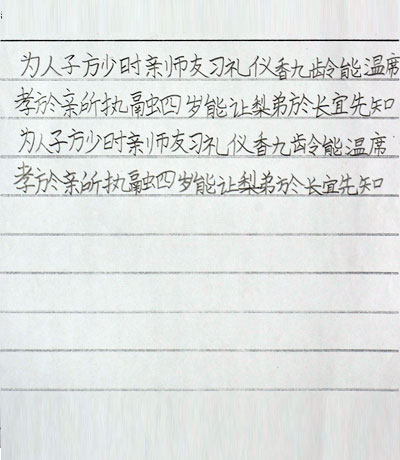 为人子方少时亲师友习礼仪香九龄能温席
孝於亲所执融四岁能让梨弟於长宜先知
为人子方少时亲师友习礼仪香九龄能温席
孝於亲所执融四岁能让梨弟於长宜先知